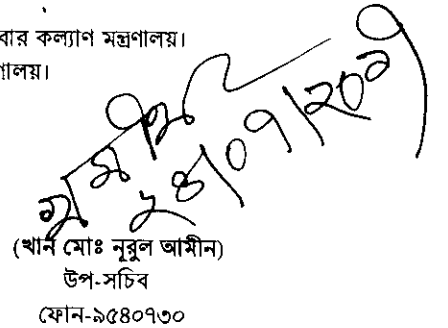 বার কল্যাণ মন্ত্রণালয়।
ণালয়।
(খান মোঃ নূরুল আমীন)
উপ-সচিব
ফোন-৯৫৪০৭৩০